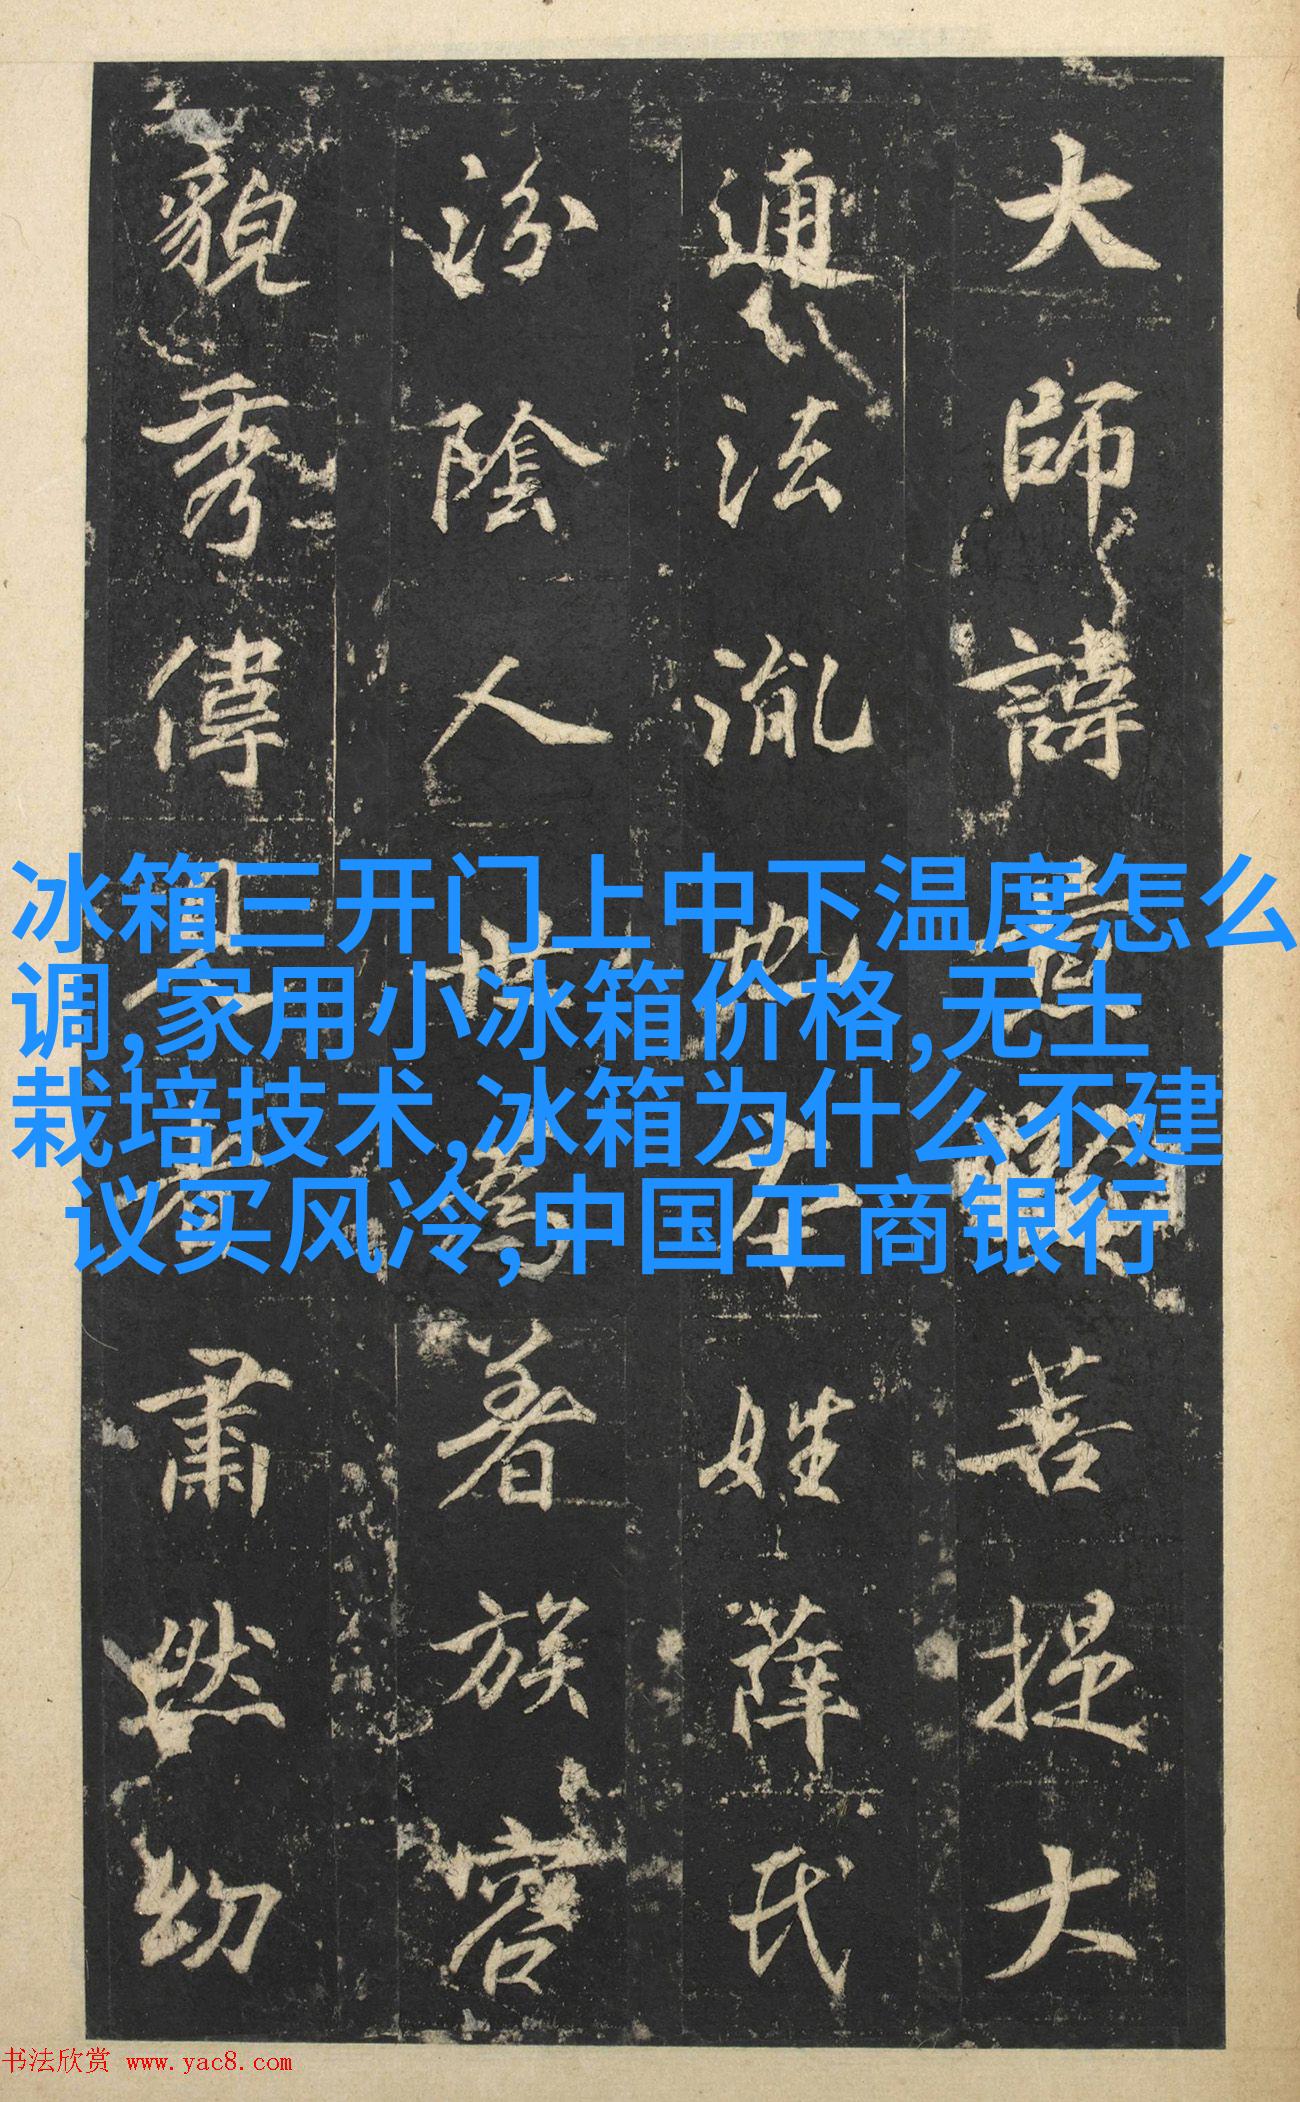 大師諱普閑菩提大
通法胤地本姓薛氏
汾陰人世為著族容
貌秀偉聖者肅然幼
冰箱三开门上中下温度怎么
调,家用小冰箱价格,无土
栽培技术,冰箱为什么不建
议买风冷,中国工商银行
书法欣赏 www.yac8.com